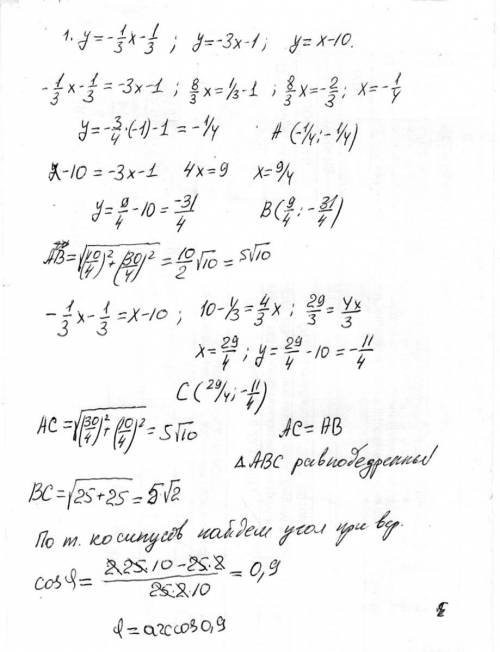 1. y=-1/3x-1/3 ; y=-3x-1; y=x-10.
-1/3x-1/3=-3x-1 ; 8/3x=1/3-1 ; 8/3x=-2/3; x=-1/4
y=-3/4·(-1)-1=-1/4 A(-1/4;-1/4)
x-10=-3x-1 4x=9 x=9/4
y=9/4-10=-31/4 B(9/4;-31/4)
AB=√((10/4)²+(30/4)²)=10/2√10=5√10
-1/3x-1/3=x-10 ; 10-1/3=4/3x ; 29/3=4x/3
x=29/4; y=29/4-10=-11/4
C(29/4;-11/4)
AC=√((30/4)²+(10/4)²)=5√10 AC=AB
△ABC равнобедренный
BC=√(25+25)=5√2
По т. косинусов найдем угол при вер.
cosφ=(2·25·10-25·2)/(25·2·10)=0,9
φ=arccos0,9